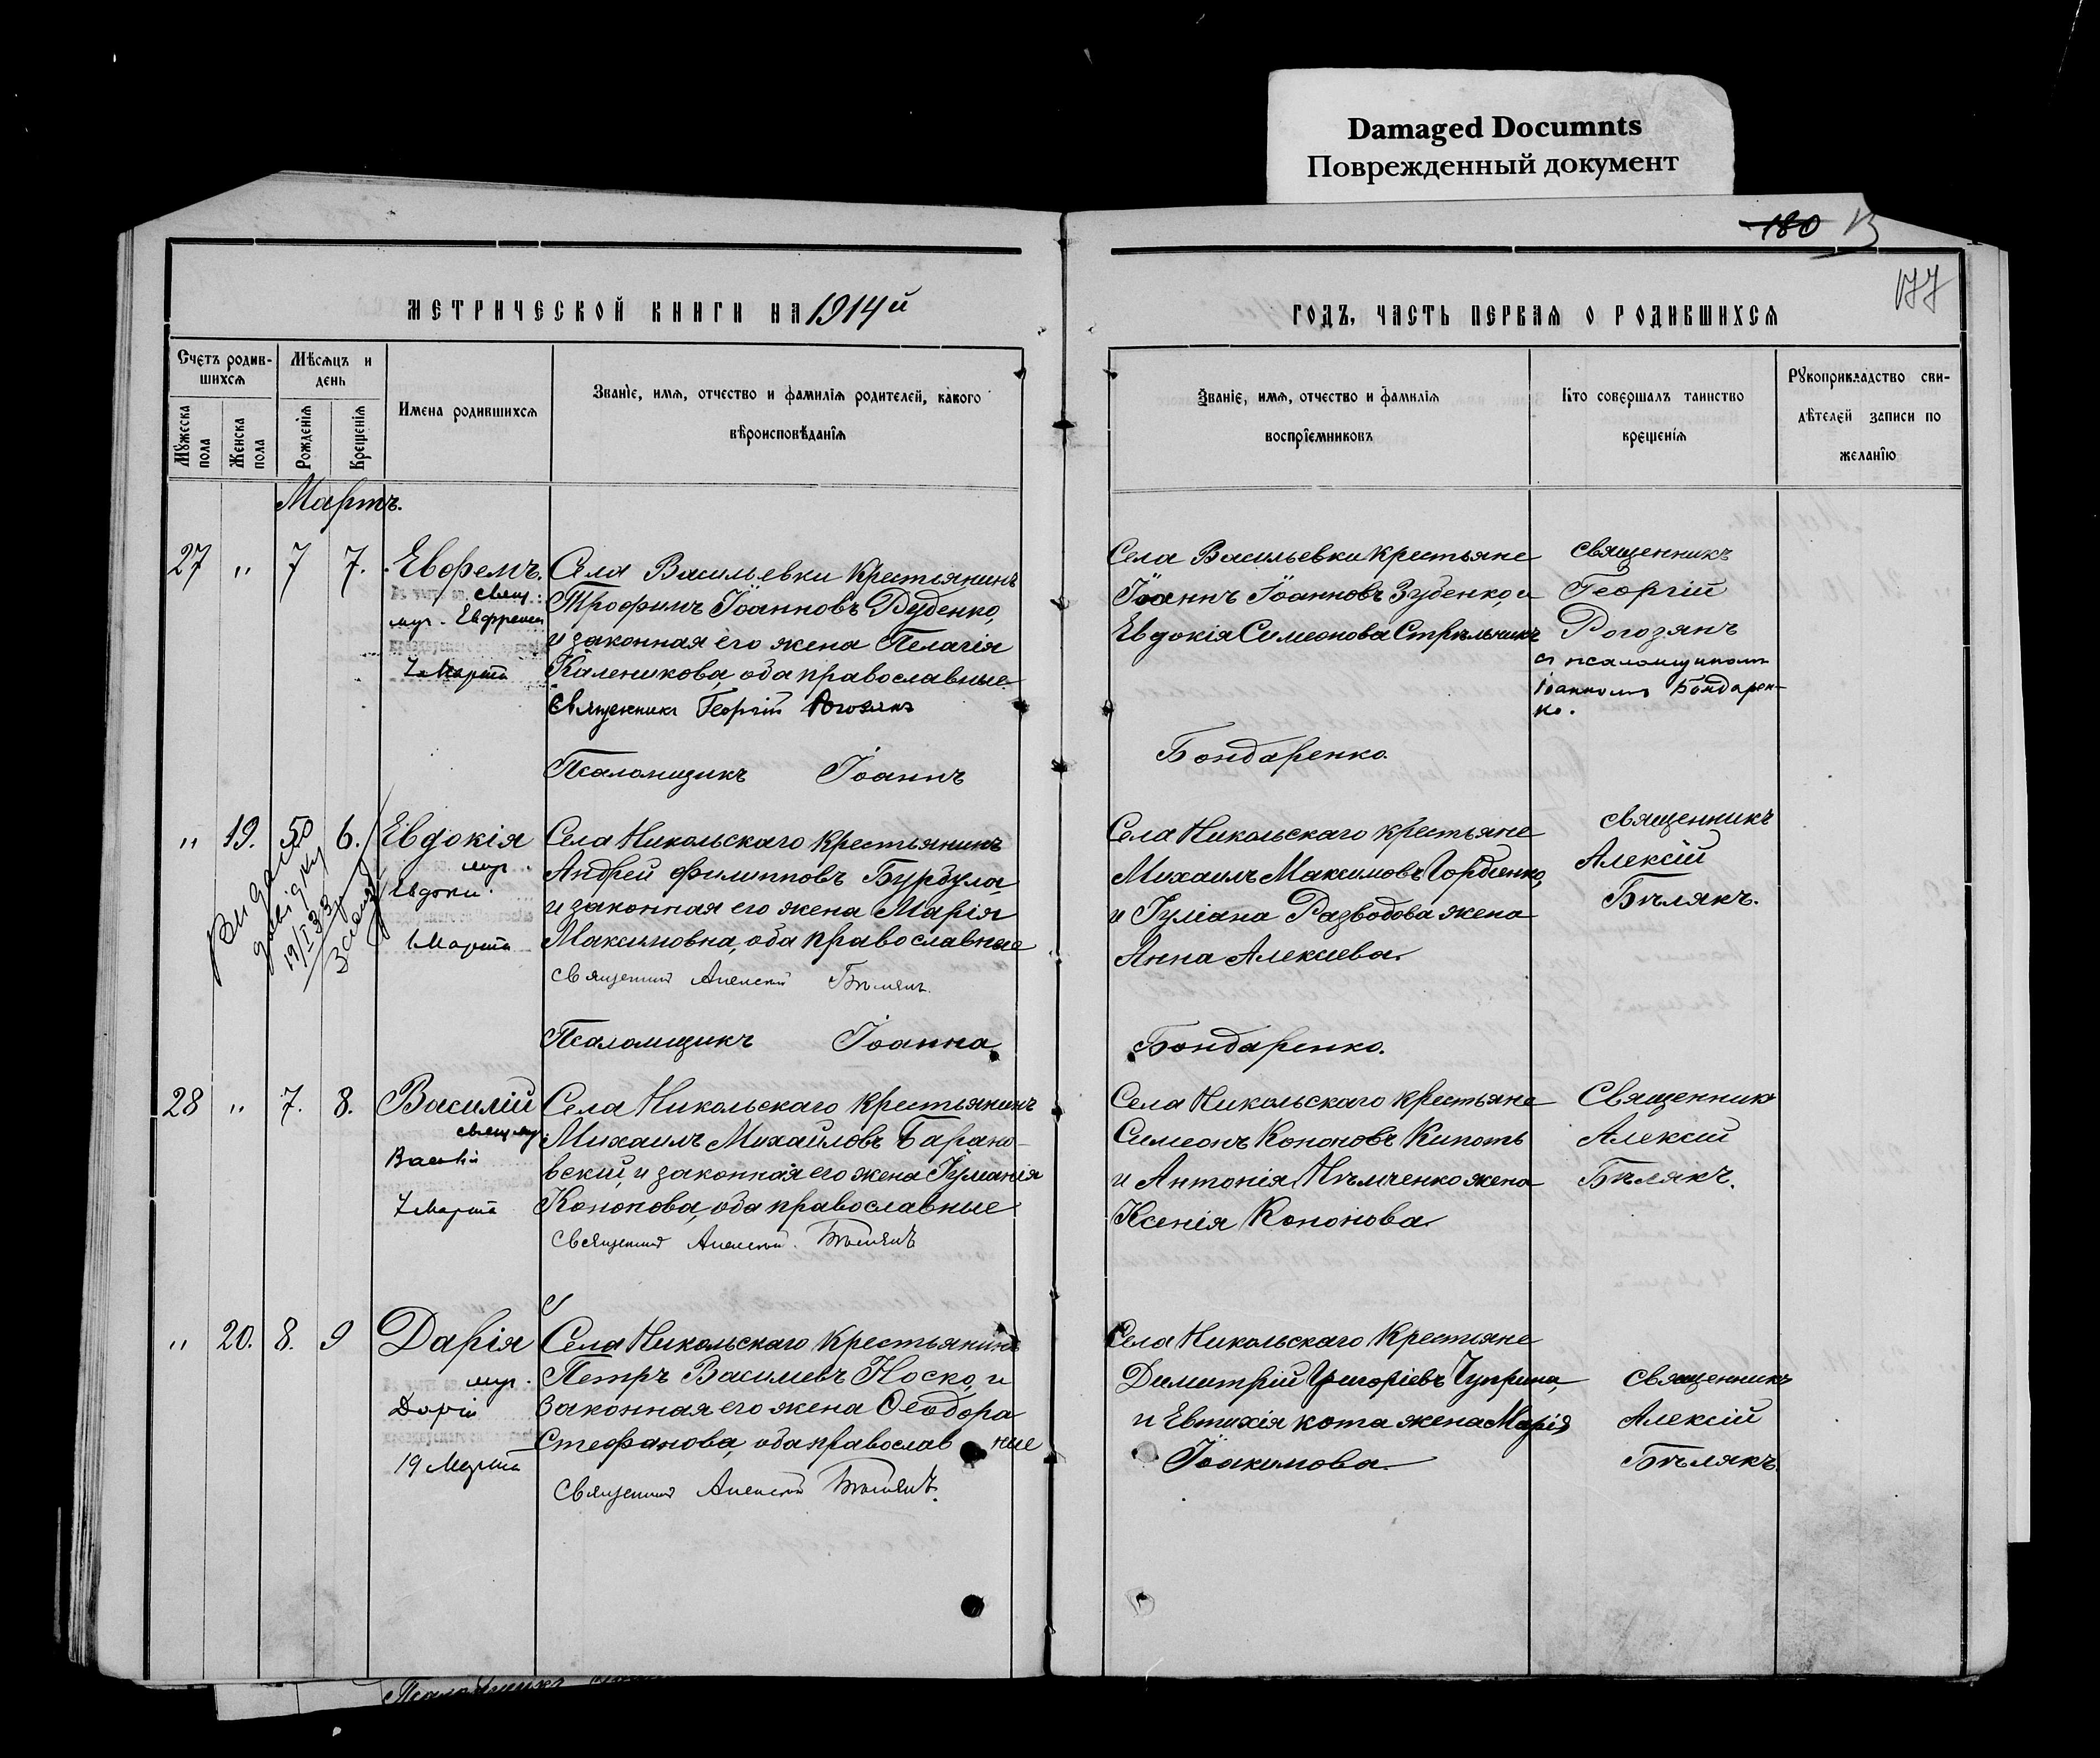 Damaged Documnts
Поврежденный документ
180
177
МЕТРИЧЕСКОЙ КНИГИ НА 1914й
ГОДЪ, ЧАСТЬ ПЕРВАЯ О РОДИВШИХСЯ
Счетъ родив-
шихся
Мѣсяцъ и
день
Мужеска
пола
Женска
пола
Рожденія
Крещенія
Имена родившихся
Званіе, имя, отчество и фамилія родителей, какого
вѣроисповѣданія
Званіе, имя, отчество и фамилія
воспріемниковъ
Кто совершалъ таинство
крещенія
Рукоприкладство сви-
дѣтелей записи по
желанію
Мартъ.
27 " 7 7. Евфремъ.
свящ.
муч. Ефрема
7 Марта
Села Васильевки крестьянинъ
Трофимъ Іоанновъ Веденко,
и законная его жена Пелагія
Каленикова, оба православные.
Священникъ Георгій Рогозянъ
Села Васильевки крестьяне
Іоаннъ Іоанновъ Зубенко, и
Евдокія Симеонова Стрѣльникъ
священникъ
Георгій
Рогозянъ
съ псаломщикомъ
Іоанномъ Бондарен-
ко.
Псаломщикъ Іоаннъ Бондаренко.
" 19. 5 6. Евдокія
муч.
Евдокіи
1 Марта
Видано
довідку
19/I 33
Села Никольскаго крестьянинъ
Андрей Филипповъ Бурбула
и законная его жена Марія
Максимовна, оба православные
Священникъ Алексій Бѣлякъ.
Села Никольскаго крестьяне
Михаилъ Максимовъ Гордіенко,
и Іуліана Разводова жена
Анна Алексіева.
священникъ
Алексій
Бѣлякъ.
Псаломщикъ Іоанна Бондаренко.
28 " 7. 8. Василій
свящ. муч.
Василій
7 Марта
Села Никольскаго крестьянинъ
Михаилъ Михаиловъ Барано-
вскій, и законная его жена Іуліанія
Кононова, оба православные
Священникъ Алексій Бѣлякъ
Села Никольскаго крестьяне
Симеонъ Кононовъ Кипоть
и Антонія Нѣмченко жена
Ксенія Кононова.
Священникъ
Алексій
Бѣлякъ.
" 20. 8. 9 Дарія
муч.
Даріи
19 Марта
Села Никольскаго крестьянинъ
Петръ Василіевъ Носко, и
законная его жена Ѳеодора
Стефанова, оба православные
Священникъ Алексій Бѣлякъ.
Села Никольскаго крестьяне
Димитрій Григоріевъ Чуприна,
и Евтихія кота жена Марія
Іоакимова.
священникъ
Алексій
Бѣлякъ.
Псаломщикъ